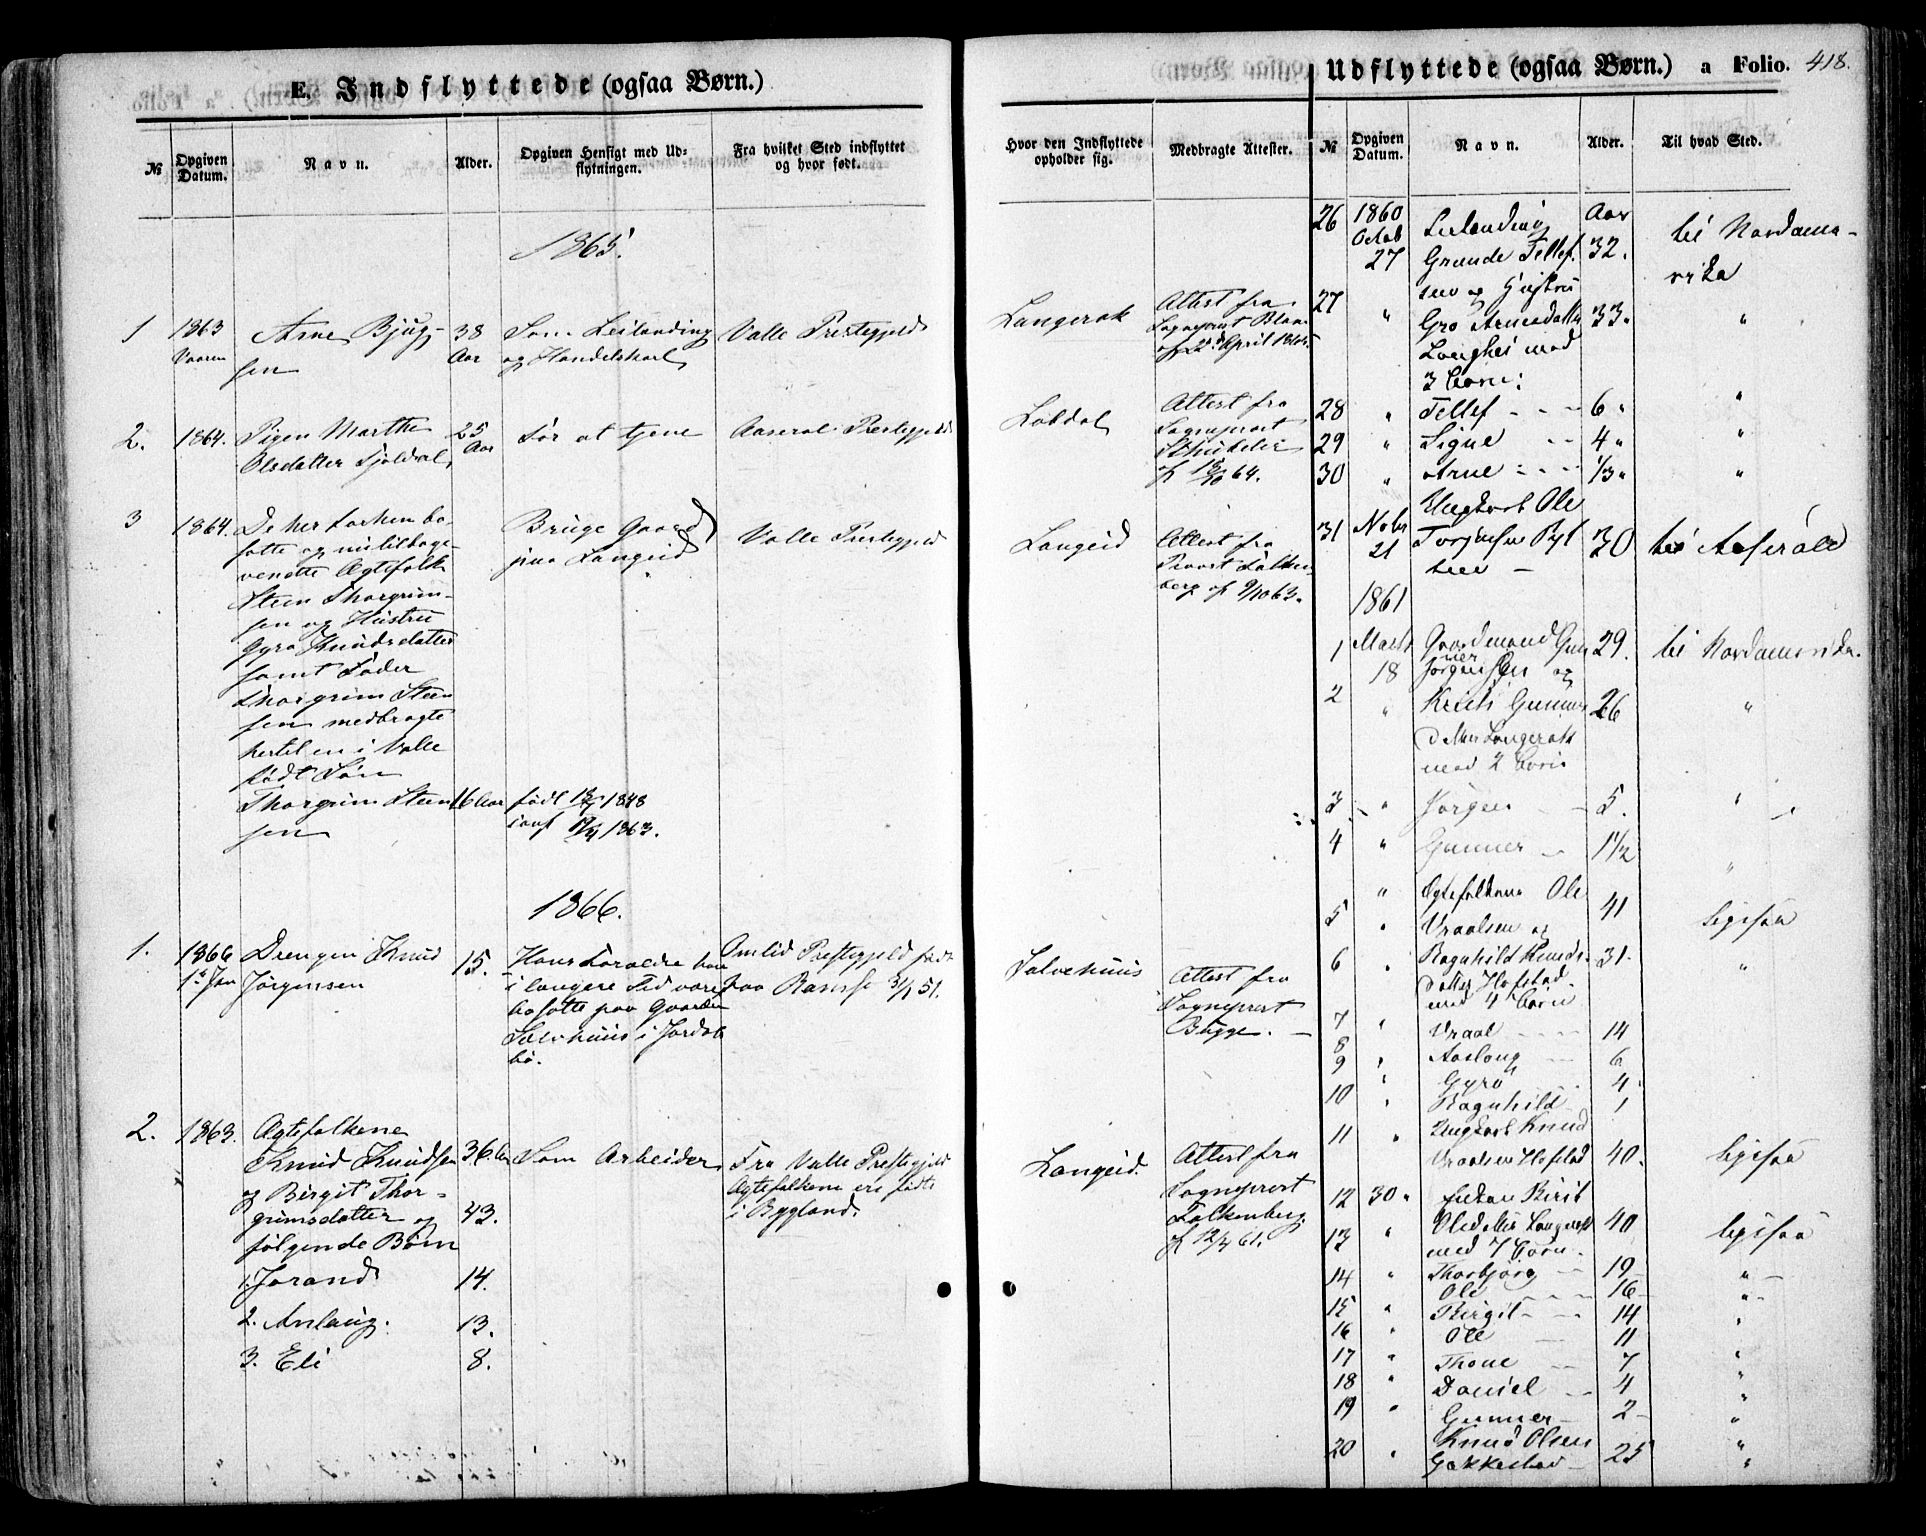 E. Indflyttede (ogsaa Børn.)
№
Opgiven Datum.
Navn.
Alder.
Opgiven Hensigt med Ud-
flytningen.
Fra hvilket Sted indflyttet
og hvor født.
Hvor den Indflyttede
opholder sig.
Medbragte Attester.
1865.
1
1863
Vaaren
Arne Bjug-
sen
38
Aar
Som Leilænding
og Handelskarl
Valle Prestegjeld
Langerak
Attest fra
Sogneprest
2.
1864.
Pigen Marthe
Olsdatter
25
Aar
For at tjene
Aaseral Prestegjeld
Attest fra
Sogneprest
64.
3
1864.
De her forhen bo-
satte og nu tilbage-
vendte Ægtefolk
Steen Thorgrim-
sen og Hustru
Gyro Knudsdatter
samt Fader
Thorgrim Steen
sen medbragte
hertil en i Valle
født Søn
Thorgrim Steen
sen
16 Aar
Bruge Gaard
paa Langeid
født 1848
conf 1863.
Valle Prestegjeld
Langeid
Attest fra
Provst Falken-
berg af 9/10 63.
1866.
1.
1866
1ste Jan
Drengen Knud
Jørgensen
15.
Hans Forældre have
i længere Tid været
bosatte paa Gaarden
Salvehuus i Jordal
bø.
Omlid Prestegjeld født
paa 51.
Salvehuus
Attest fra
Sogneprest
Bugge.
2.
1863.
Ægtefolkene
Knud Knudsen
og Birgit Thor-
grimsdatter og
følgende Børn
1. Jorand
2. Aslaug.
3. Eli
36 Aar
43.
14.
13.
8.
Som Arbeider
Fra Valle Prestegjeld
Ægtefolkene ere fødte
i Bygland.
Langeid.
Attest fra
Sogneprest
Falkenberg
af 12/4 61.
Udflyttede (ogsaa Børn.) a Folio. 418.
№
Opgiven
Datum.
Navn.
Alder.
Til hvad Sted.
26
1860
Octob
27
Leilænding
Grunde Tellef-
sen og Hustru
Aar
32.
til Nordame-
rika
27
"
Gro Arnesdatter
med
3 Børn:
33.
"
28 " Tellef 6 "
29 " Signe 4 "
30 " Arne 1/3 "
31
Nobr
21
Ungkarl Ole
30
til Aaserald
1861
1
Marts
18
Gaardmand Gun
ner Jørgensen og
29.
til Nordamerika.
2
"
Kristi Gunners
datter Langerak
med 2 Børn
26
"
3 " Jørgen 5. "
4 " Gunner 1 1/2 "
5
"
Ægtefolkene Ole
Vraalsen og
41
ligesaa
6
"
Ragnhild Knuds-
datter Hofstad
med 4 Børn
31.
"
7 " Vraal 14
8 " Aaslaug 6
9 " Gyro 4
10 " Ragnhild 1
11
"
Ungkarl Knud
Vraalsen Hofstad
40.
ligesaa
12
30
Enken Birit
Olsdatter Langerak
med 7 Børn
40
ligesaa
13 " Thorbjørg 19 "
14 " Ole 16 "
15 " Birgit 14 "
16 " Ole 11 "
17 " Thone 7 "
18 " Daniel 4 "
19 " Gunner 2 "
20
"
Knud Olsen
25
"